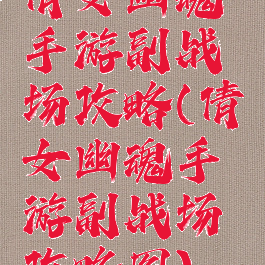 倩女幽魂
手游副战
场攻略(倩
女幽魂手
游副战场
攻略图)